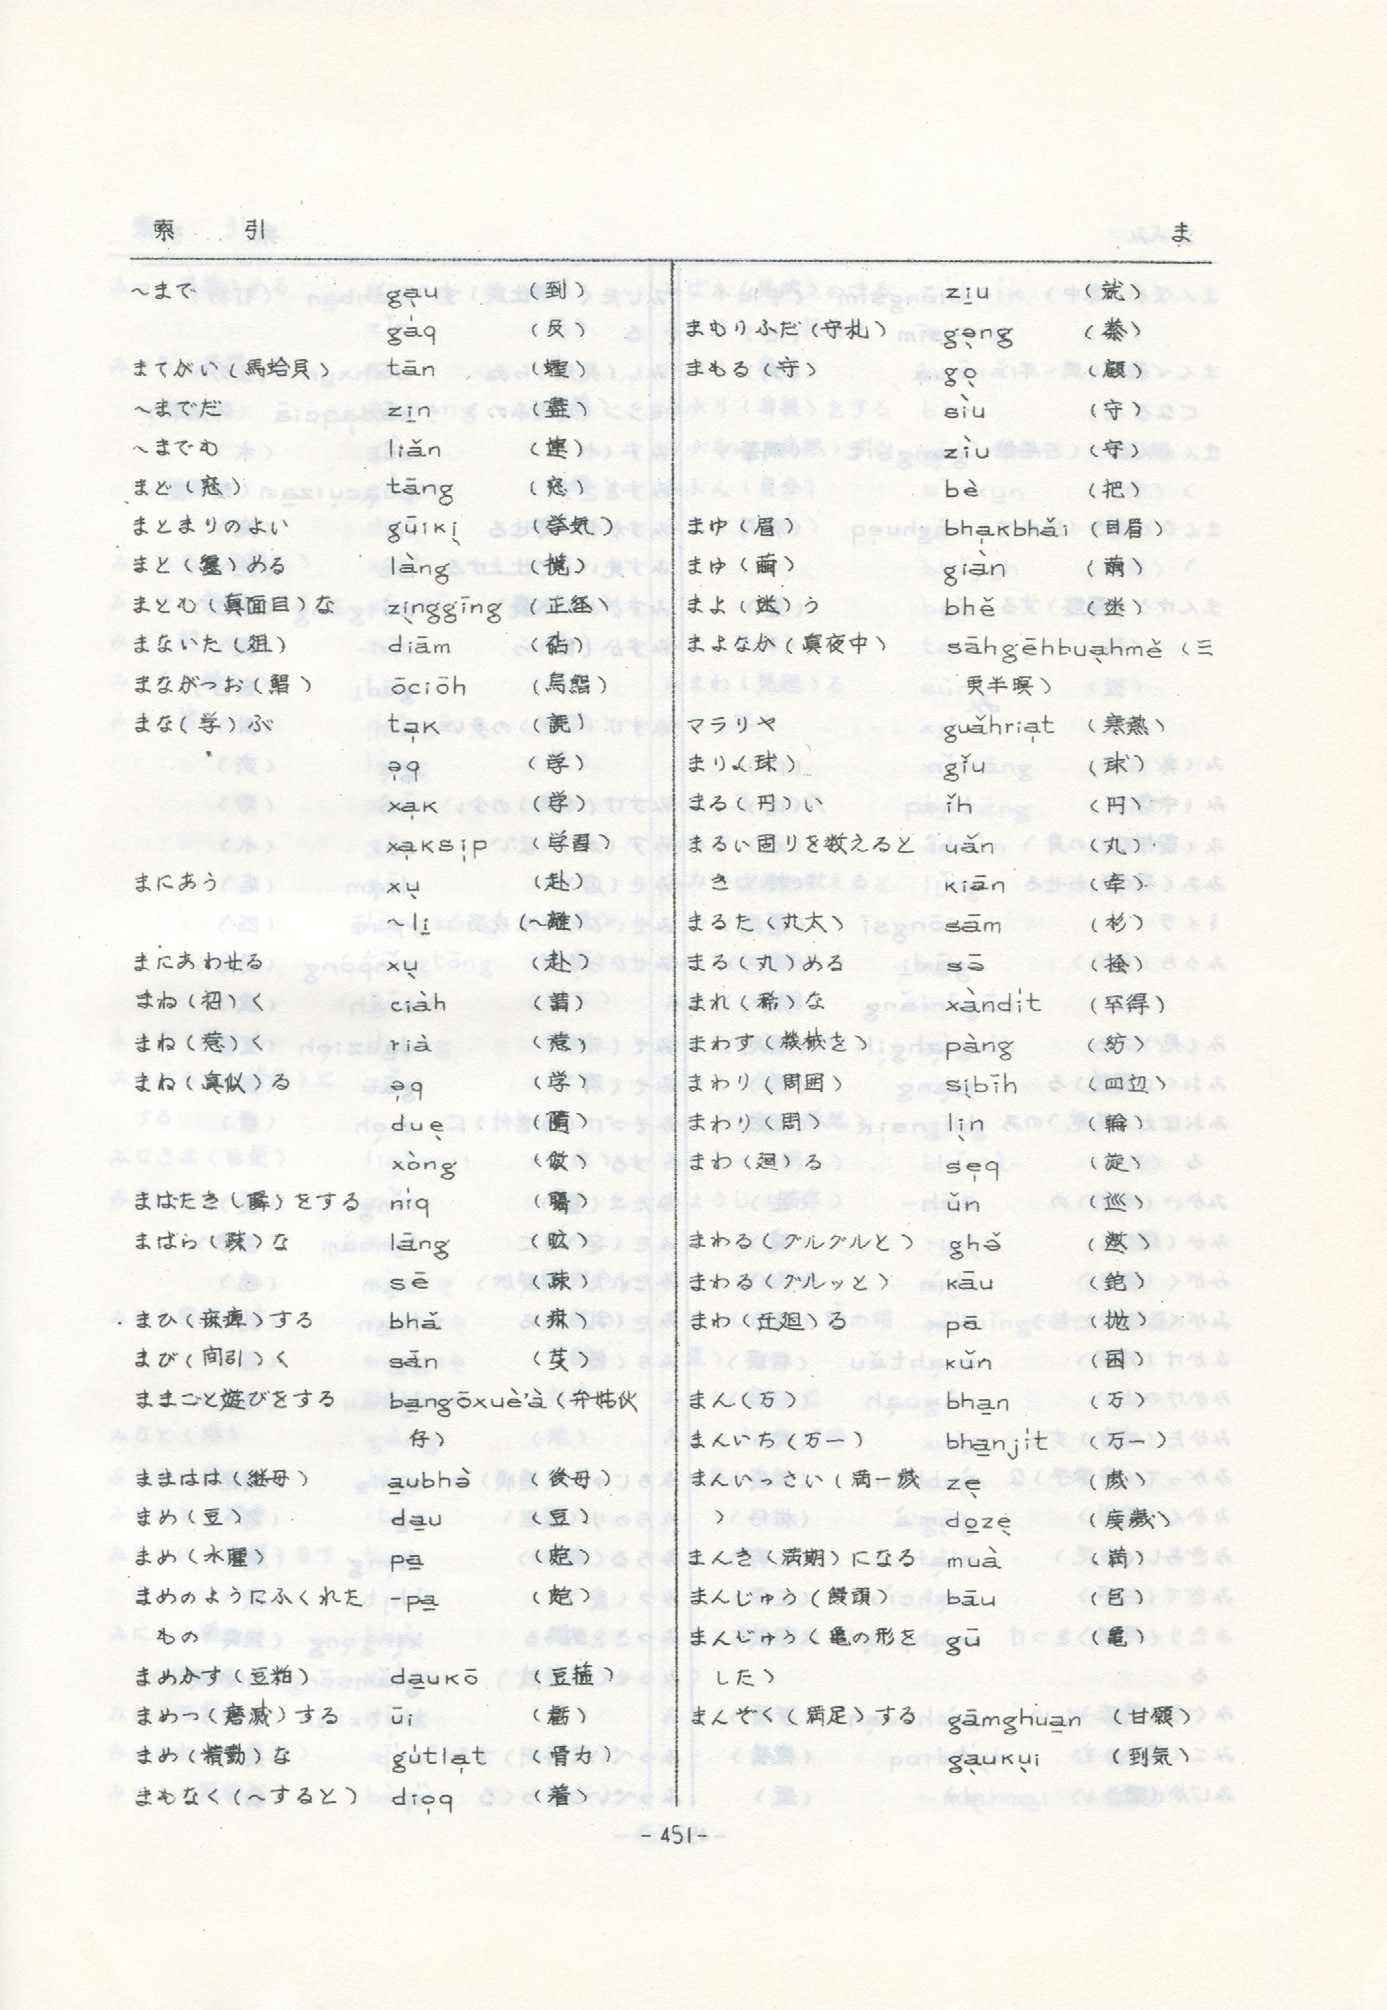 索　引　ま
～まで　gạu　（到）
gáq　（反）
まてがい（馬蛤貝）　tān　（蟶）
～までだ　zi̱n　（盡）
～までも　liǎn　（連）
まど（窓）　tāng　（窓）
まとまりのよい　gūikị　（挙気）
まと（纏）める　làng
まとも（真面目）な　zịnggīng　（正経）
まないた（俎）　diām　（砧）
まながつお（鯧）　ōciōh　（烏鯧）
まな（学）ぶ　tạk　（読）
ə̣q　（学）
xạk　（学）
xạksịp　（学習）
まにあう　xụ　（赴）
～li̱　（～離）
まにあわせる　xụ　（赴）
まね（招）く　ciàh
まね（惹）く　rià　（惹）
まね（真似）る　ə̣q　（学）
duẹ　（隨）
xòng　（倣）
まばたき（瞬）をする　níq
まばら（疎）な　lāng
sē　（疎）
まひ（痲痺）する　bhǎ　（痲）
まび（間引）く　sān
ままごと遊びをする　ba̱ngōxuè'à（弁姑伙
仔）
ままはは（継母）　a̱ubhə̀　（後母）
まめ（豆）　da̱u　（豆）
まめ（水腫）　pa̱　（皰）
まめのようにふくれた　-pa̱　（皰）
もの
まめかす（豆粕）　da̱ukō　（豆箍）
まめつ（磨滅）する　ūi
まめ（精勤）な　gútlạt　（骨力）
まもなく（～すると）　diọq　（着）
zi̱u　（就）
まもりふだ（守札）　gə̣ng
まもる（守）　gò　（顧）
siù　（守）
ziù　（守）
bè　（把）
まゆ（眉）　bhạkbhǎi　（目眉）
まゆ（繭）　giàn　（繭）
まよ（迷）う　bhě　（迷）
まよなか（真夜中）　sāhgēhbuạhmě（三
更半暝）
マラリヤ　guǎhriạt　（寒熱）
まり（球）　giǔ　（球）
まる（円）い　ǐh　（円）
まるい回りを数えると　uǎn　（丸）
き　kiān　（牽）
まるた（丸太）　sām　（杉）
まる（丸）める　sə̄
まれ（稀）な　xàndít　（罕得）
まわす（機械を）　pàng　（紡）
まわり（周囲）　sịbīh　（四辺）
まわり（周）　lìn　（輪）
まわ（廻）る　sẹq　（旋）
ǔn　（巡）
まわる（グルグルと）　ghə̌
まわる（グルッと）　kāu
まわ（迂廻）る　pā　（抛）
kǔn　（困）
まん（万）　bha̱n　（万）
まんいち（万一）　bha̱njít　（万一）
まんいっさい（満一歳　zẹ　（歳）
）　do̱zẹ　（度歳）
まんき（満期）になる　muà　（満）
まんじゅう（饅頭）　bāu　（包）
まんじゅう（亀の形を　gū　（亀）
した）
まんぞく（満足）する　gāmghua̱n　（甘願）
gạukụi　（到気）
-451-